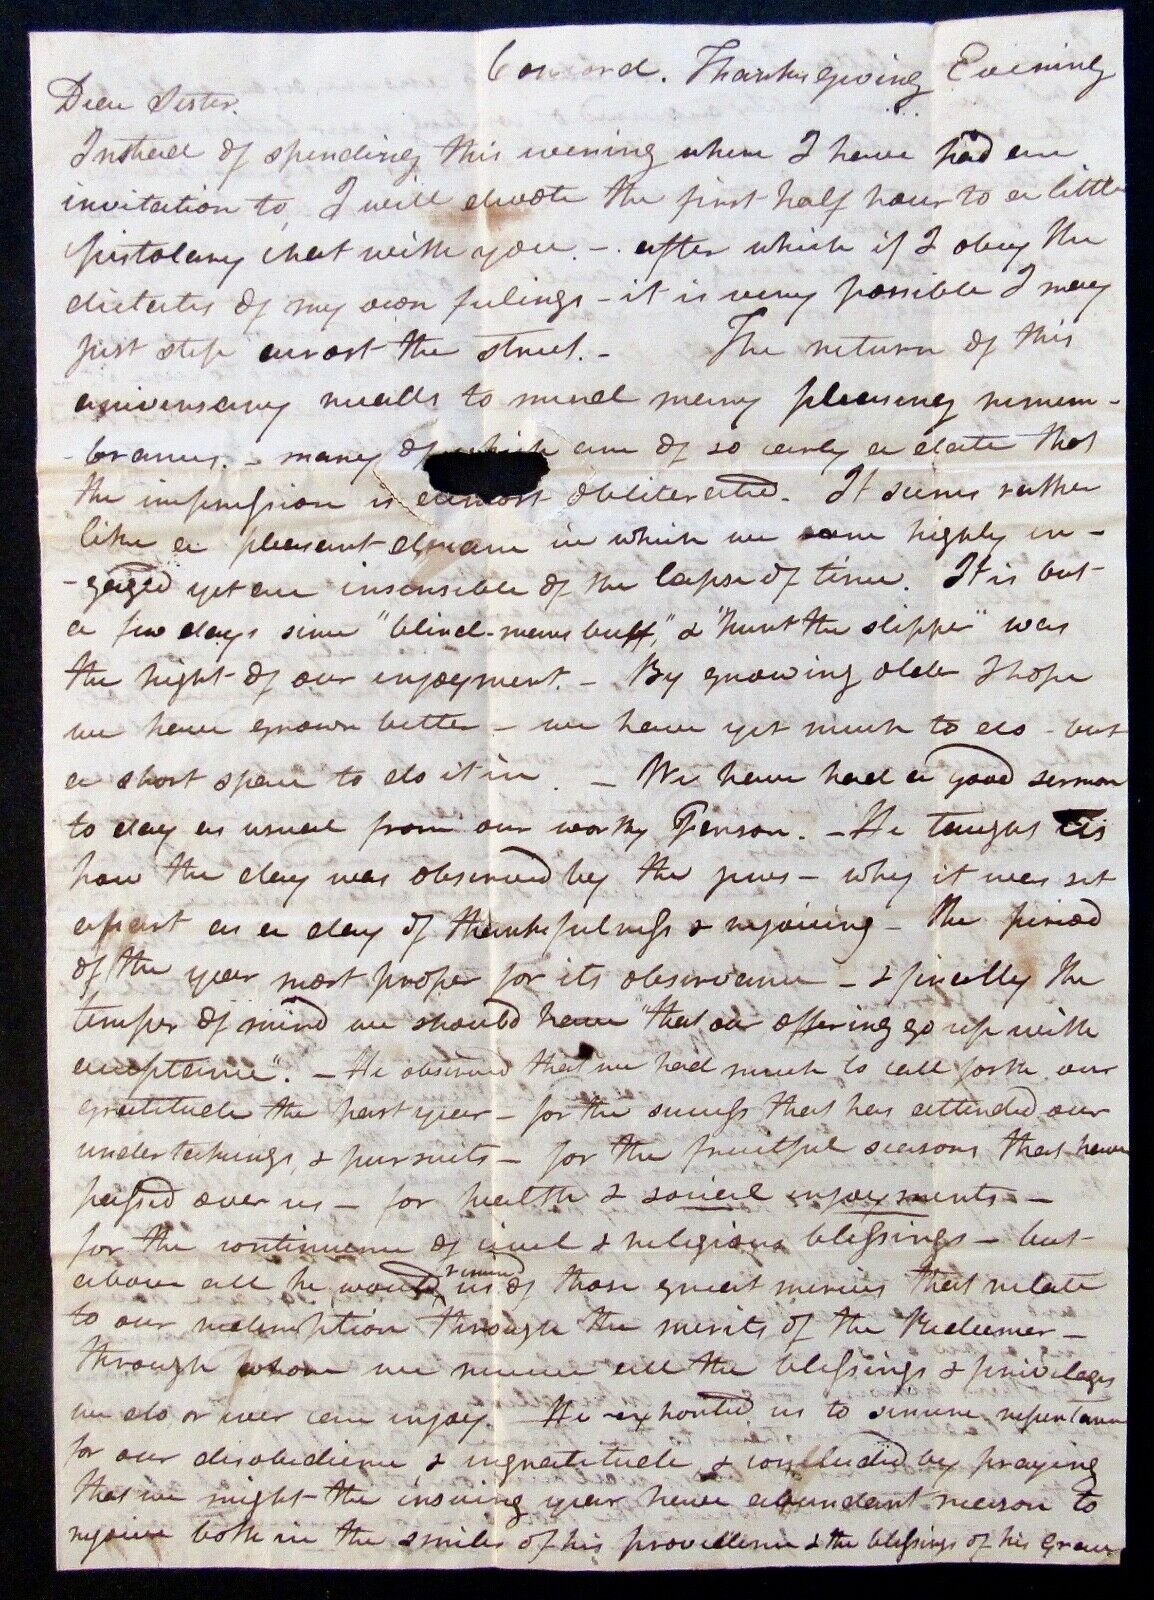 Concord. Thanksgiving Evening
Dear Sister.
Instead of spending this evening where I have had an
invitation to, I will devote the first half hour to a little
Epistolary chat with you. - after which if I obey the
dictates of my own feelings - it is very possible I may
just step acrost the street. - The return of this
aniversary recalls to mind many pleasing remem-
-brances. - many of which are of so early a date that
the impression is almost obliterated. It seems rather
like a pleasant dream in which we were highly en-
-gaged yet are insensible of the lapse of time. It is but
a few days since "blind-mans buff," & "hunt the slipper" was
the hight of our enjoyment. - By growing older I hope
we have grown better - we have yet much to do - but
a short space to do it in. - We have had a good sermon
to day as usual from our worthy Person. - He taught us
how the day was observed by the jews - why it was set
apart as a day of thankfulness & rejoicing - the period
of the year most proper for its observance - & finally the
temper of mind we should have "that our offering go up with
acceptance". - He observed that we had much to call forth our
gratitude the past year - for the success that has attended our
undertakings, & pursuits - for the fruitful seasons that have
passed over us - for health & social enjoyments -
for the continuence of civil & religious blessings - but
above all he would remind us of those great mercies that relate
to our redemption through the merits of the Redeemer -
through whom we receive all the blessings & privileges
we do or ever can enjoy. He exhorted us to sincere repentance
for our disobedience & ingratitude & concluded by praying
that we might the insuing year have abundant reason to
rejoice both in the smiles of his providence & the blessings of his Grace